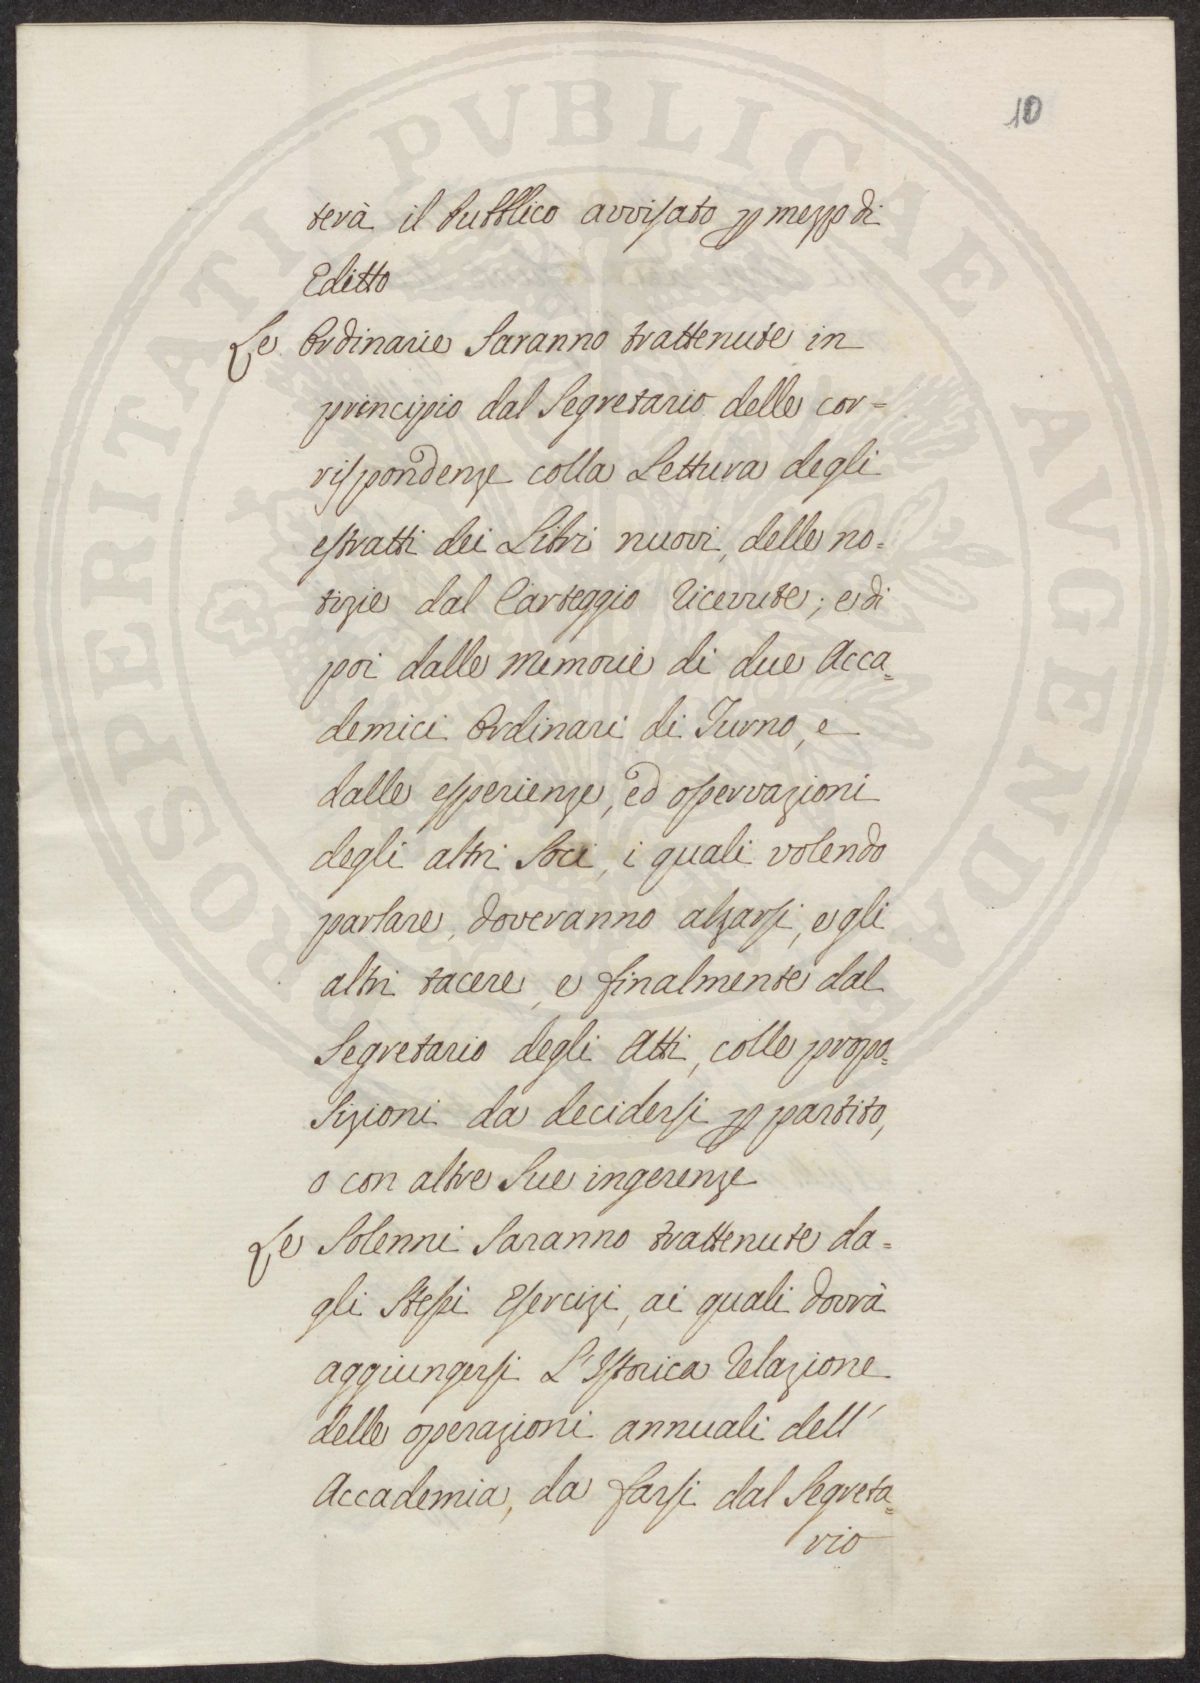 10
terà il Pubblico avvisato p mezzo di
Editto
Le Ordinarie Saranno trattenute in
principio dal Segretario delle cor=
rispondenze colla Lettura degli
estratti dei Libri nuovi, delle no=
tizie dal Carteggio ricevute; e di
poi dalle memorie di due Acca=
demici Ordinari di Turno, e
dalle esperienze, ed osservazioni
degli altri Soci, i quali volendo
parlare, doveranno alzarsi, e gli
altri tacere, e finalmente dal
Segretario degli Atti, colle propo=
sizioni da decidersi p partito,
o con altre Sue ingerenze
Le Solenni Saranno trattenute da=
gli Stessi Esercizi, ai quali dovrà
aggiungersi L'Istorica relazione
delle operazioni annuali dell'
Accademia, da farsi dal Segreta=
rio
PROSPERITATI PVBLICAE AVGENDAE